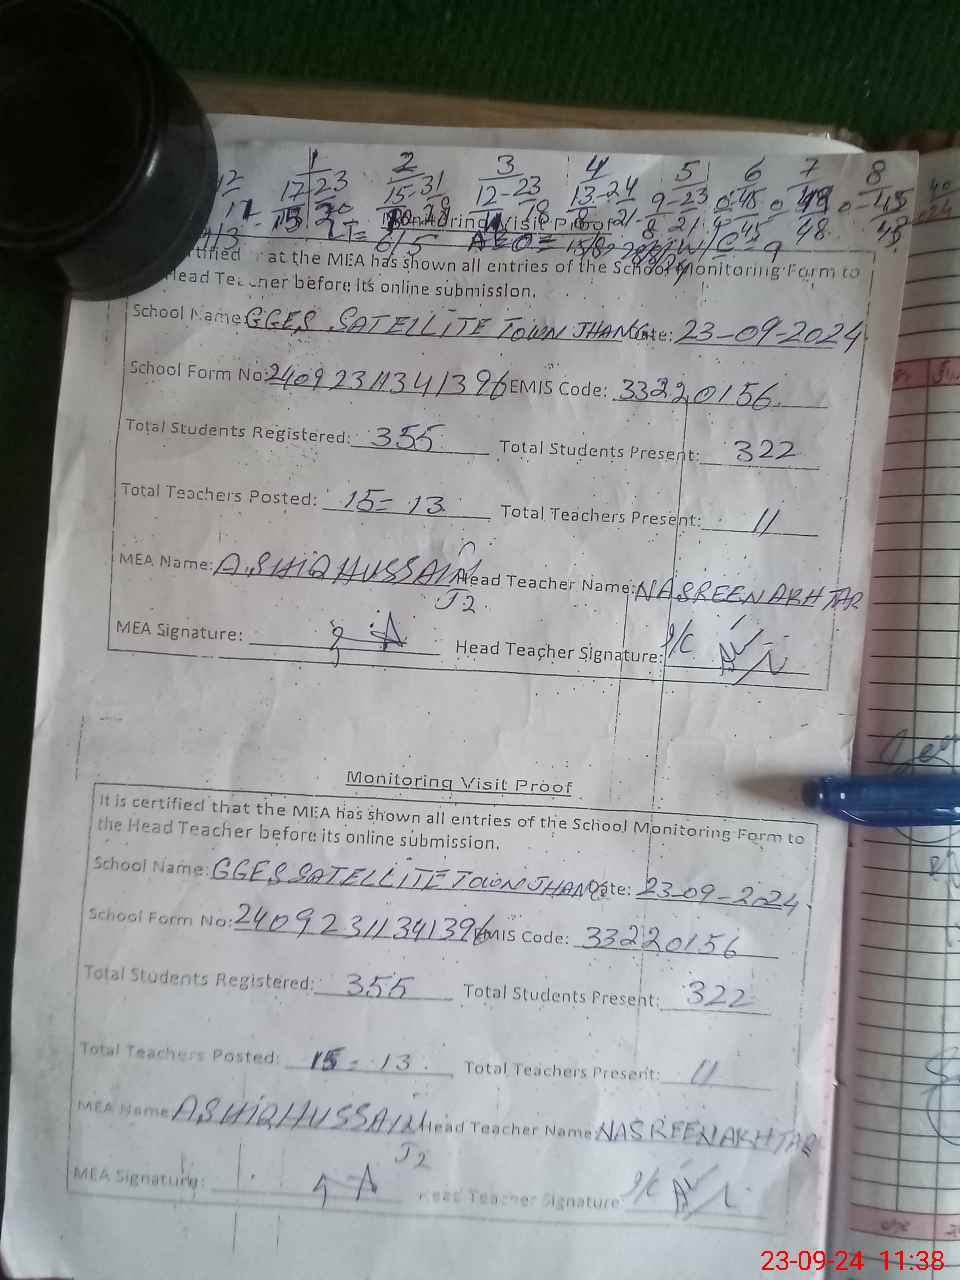 1 2 3 4 5 6 7 8
17-23 15-31 12-23 13-24 9-23 0-45 0-49 0-45
48 45
LT= 6/5 AEO=
Monitoring Visit Proof
at the MEA has shown all entries of the School Monitoring Form to
Head Teacher before its online submission.
School Name: GGES SATELLITE TOWN JHANG Date: 23-09-2024
School Form No: 24092311341396 EMIS Code: 33220156
Total Students Registered: 355 Total Students Present: 322
Total Teachers Posted: 15= 13 Total Teachers Present: 11
MEA Name: ASHIQ HUSSAIN Head Teacher Name: NASREEN AKHTAR
J2
MEA Signature: Head Teacher Signature: I/C
Monitoring Visit Proof
It is certified that the MEA has shown all entries of the School Monitoring Form to
the Head Teacher before its online submission.
School Name: GGES SATELLITE TOWN JHANG Date: 23-09-2024
School Form No: 24092311341396 EMIS Code: 33220156
Total Students Registered: 355 Total Students Present: 322
Total Teachers Posted: 15= 13 Total Teachers Present: 11
MEA Name ASHIQ HUSSAIN Head Teacher Name: NASREEN AKHTAR
J2
MEA Signature: Head Teacher Signature I/C
23-09-24 11:38